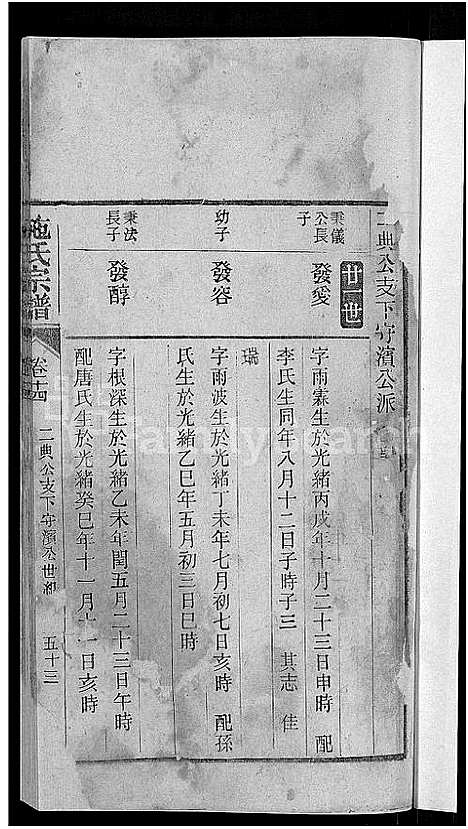 二典公支下守濱公派
廿一世
秉儀公長子
發愛
字雨霖生於光緒丙戌年十月二十三日申時 配
李氏生同年八月十二日子時子三 其志 佳
瑞
幼子
發容
字雨波生於光緒丁未年七月初七日亥時 配孫
氏生於光緒乙巳年五月初三日巳時
秉法長子
發醇
字根深生於光緒乙未年閏五月二十三日午時
配唐氏生於光緒癸巳年十一月十一日亥時
施氏宗譜
卷十四
二典公支下守濱公世紀
五十三